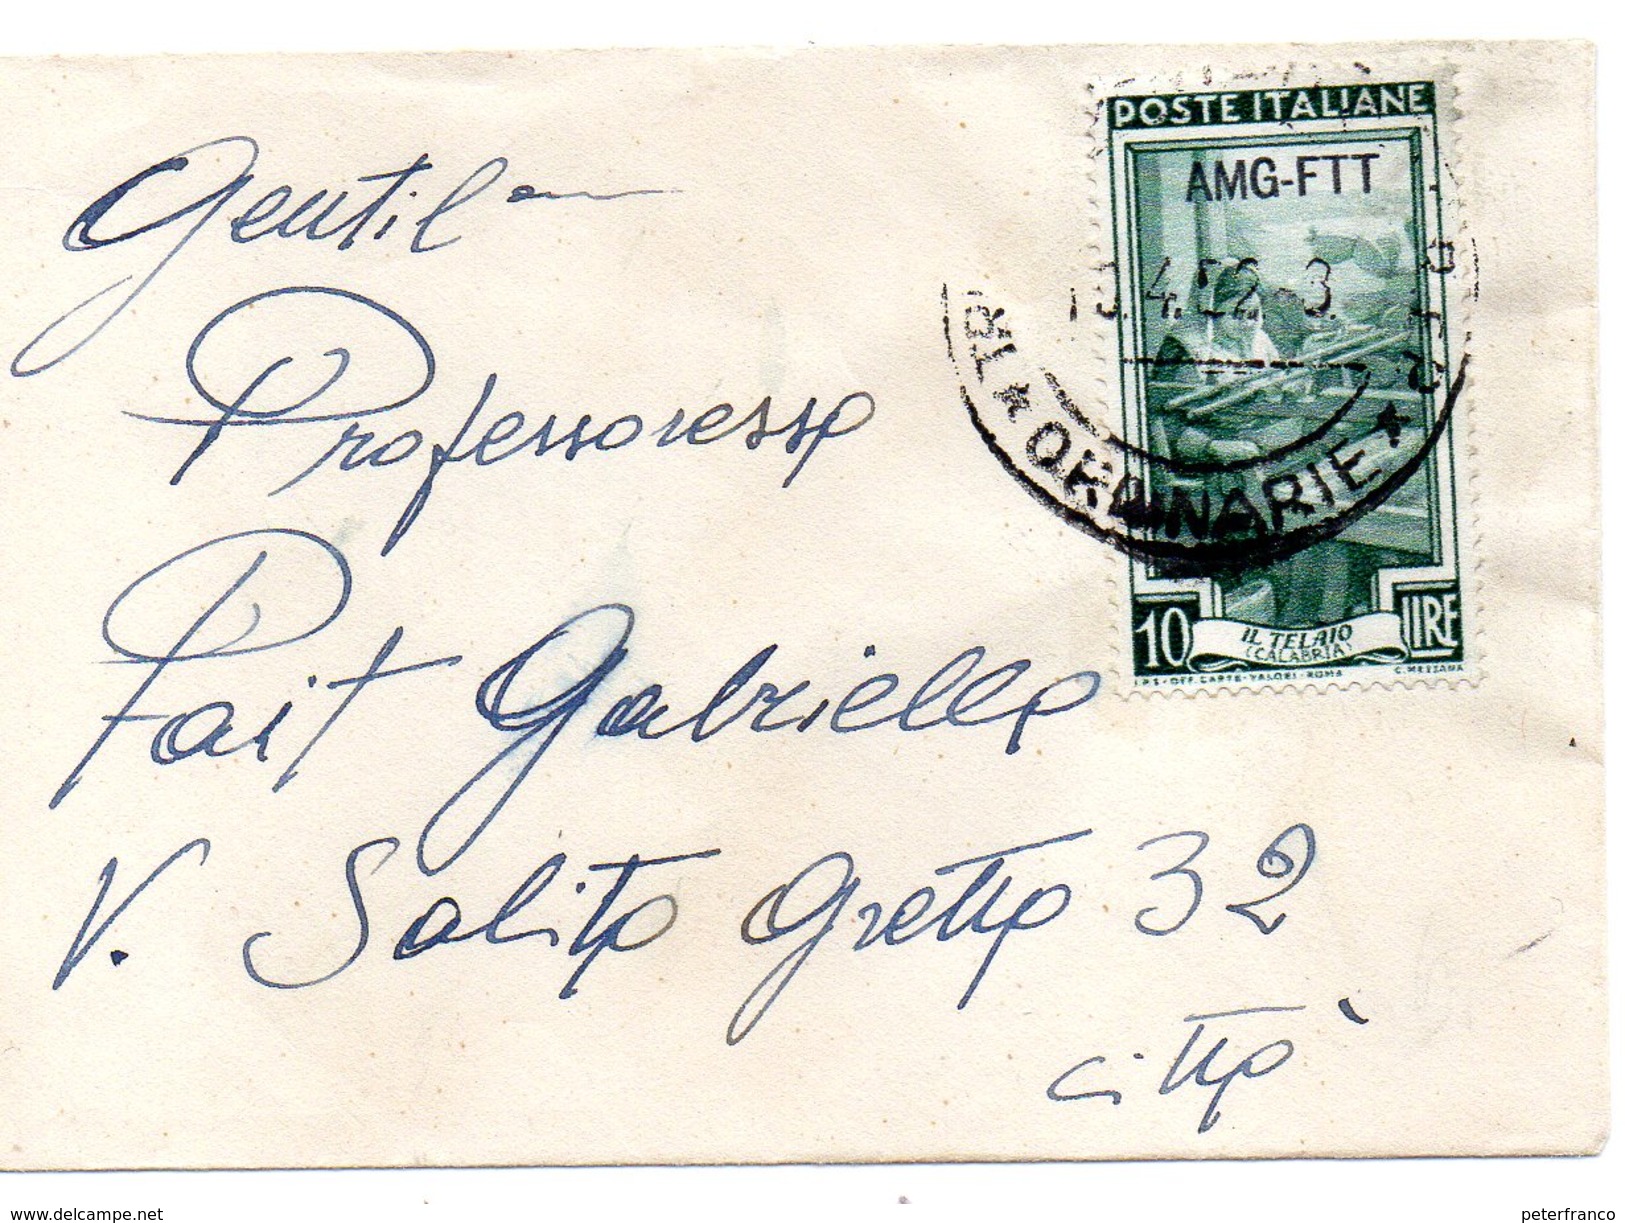 POSTE ITALIANE
AMG-FTT
4.52.-3.
★ ORDINARIE ★
10 LIRE
IL TELAIO
(CALABRIA)
I.P.S.-OFF. CARTE-VALORI-ROMA C. MEZZANA
Gentil
Professoressa
Pait Gabriella
V. Salita Gretta 32
città
www.delcampe.net
peterfranco